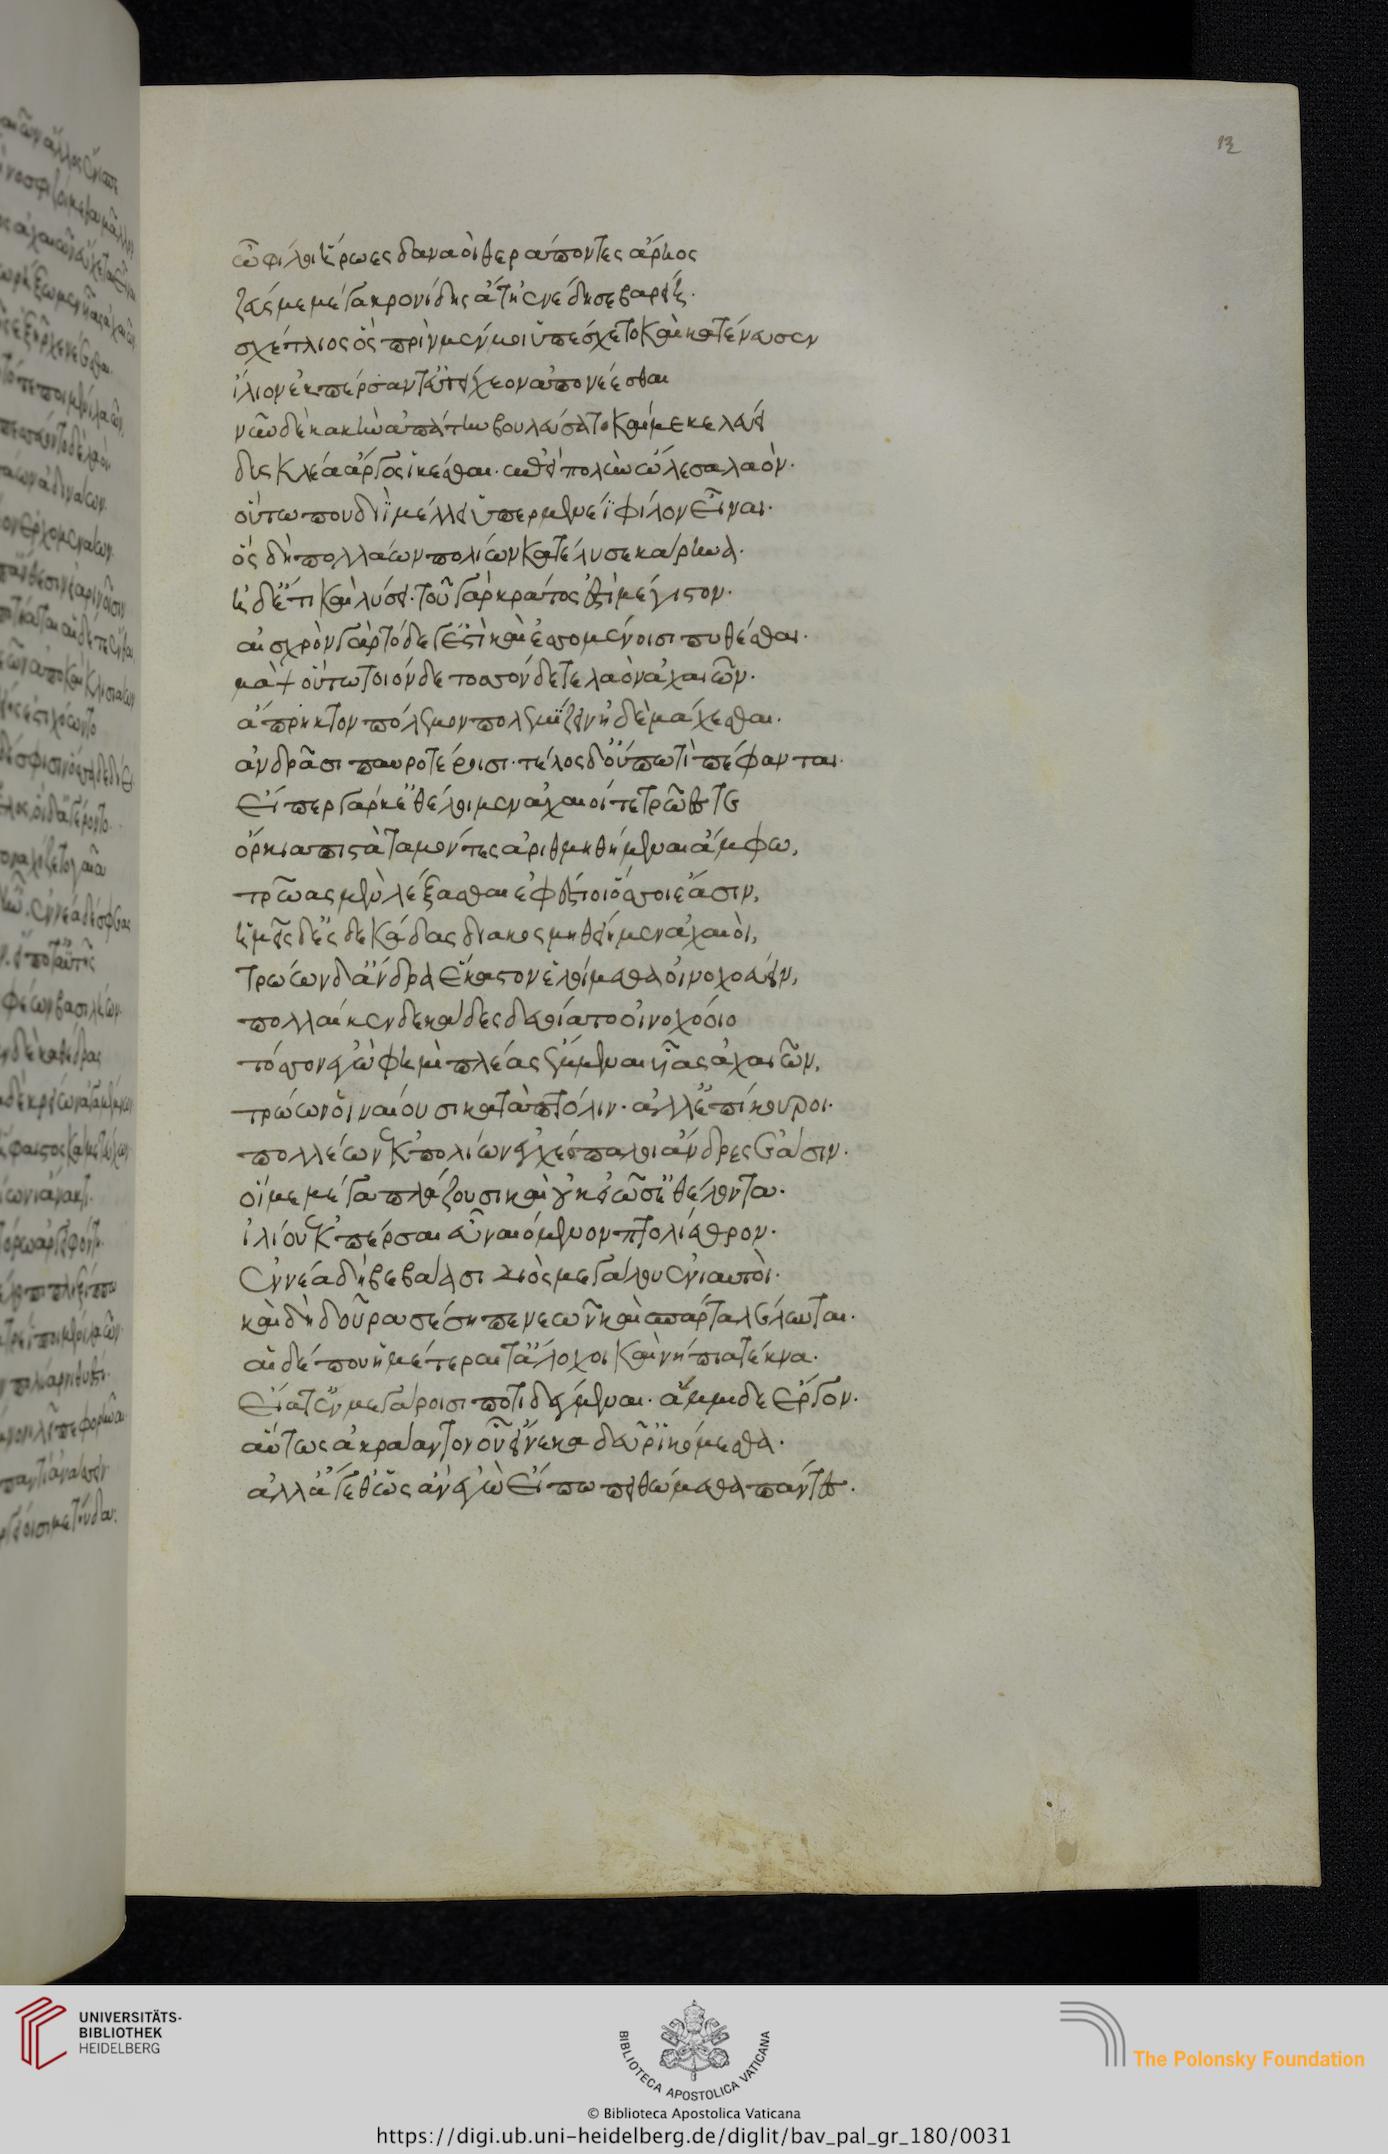 13
ὦ φίλοι ἥρωες δαναοὶ θεράποντες ἄρηος
ζεύς με μέγα κρονίδης ἄτῃ ἐνέδησε βαρείῃ.
σχέτλιος ὃς πρὶν μέν μοι ὑπέσχετο καὶ κατένευσεν
ἴλιον ἐκπέρσαντ' εὐτείχεον ἀπονέεσθαι
νῦν δὲ κακὴν ἀπάτην βουλεύσατο καί με κελεύει
δυσκλέα ἄργος ἱκέσθαι. ἐπεὶ πολὺν ὤλεσα λαόν.
οὕτω που διῒ μέλλει ὑπερμενέϊ φίλον εἶναι.
ὃς δὴ πολλάων πολίων κατέλυσε κάρηνα.
ἠδ' ἔτι καὶ λύσει. τοῦ γὰρ κράτος ἐστὶ μέγιστον.
αἰσχρὸν γὰρ τόδε γ' ἐστὶ καὶ ἐσσομένοισι πυθέσθαι.
μὰψ οὕτω τοιόνδε τοσσόνδε τε λαὸν ἀχαιῶν.
ἄπρηκτον πόλεμον πολεμίζειν ἠδὲ μάχεσθαι.
ἀνδράσι παυροτέροισι. τέλος δ' οὔπω τὶ πέφανται.
εἴπερ γάρ κ' ἐθέλοιμεν ἀχαιοί τε τρῶές τε
ὅρκια πιστὰ ταμόντες ἀριθμηθήμεναι ἄμφω,
τρῶας μὲν λέξασθαι ἐφέστιοι ὅσσοι ἔασιν,
ἡμεῖς δ' ἐς δεκάδας διακοσμηθείημεν ἀχαιοὶ,
τρώων δ' ἄνδρα ἕκαστον ἑλοίμεθα οἰνοχοεύειν,
πολλαί κεν δεκάδες δευοίατο οἰνοχόοιο
τόσσον ἐγώ φημι πλέας ἔμμεναι υἷας ἀχαιῶν,
τρώων οἳ ναίουσι κατὰ πτόλιν. ἀλλ' ἐπίκουροι.
πολλέων ἐκ πολίων ἐγχέσπαλοι ἄνδρες ἔασιν.
οἵ με μέγα πλάζουσι καὶ οὐκ εἰῶσ' ἐθέλοντα.
ἰλίου ἐκπέρσαι εὖ ναιόμενον πτολίεθρον.
ἐννέα δὴ βεβάασι διὸς μεγάλου ἐνιαυτοὶ.
καὶ δὴ δοῦρα σέσηπε νεῶν καὶ σπάρτα λέλυνται.
αἱ δέ που ἡμέτεραί τ' ἄλοχοι καὶ νήπια τέκνα.
εἵατ' ἐν μεγάροισι ποτιδέγμεναι. ἄμμι δὲ ἔργον.
αὕτως ἀκράαντον οὗ εἵνεκα δεῦρ' ἱκόμεσθα.
ἀλλ' ἄγεθ' ὡς ἂν ἐγὼ εἴπω πειθώμεθα πάντες.
UNIVERSITÄTS-
BIBLIOTHEK
HEIDELBERG
BIBLIOTECA APOSTOLICA VATICANA
The Polonsky Foundation
© Biblioteca Apostolica Vaticana
https://digi.ub.uni-heidelberg.de/diglit/bav_pal_gr_180/0031